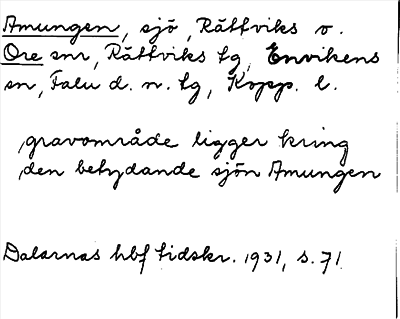 Amungen, sjö, Rättviks o.
Ore snr, Rättviks tg, Envikens
sn, Falu d. n. tg, Kopp. l.
gravområde ligger kring
den betydande sjön Amungen
Dalarnas hbf tidskr. 1931, s. 71